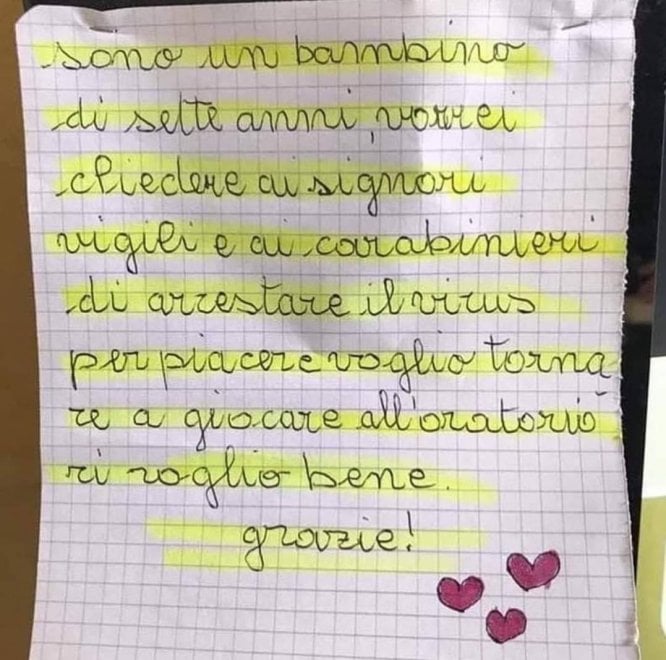 sono un bambino
di sette anni, vorrei
chiedere ai signori
vigili e ai carabinieri
di arrestare il virus
per piacere voglio torna
re a giocare all'oratorio
vi voglio bene.
grazie!